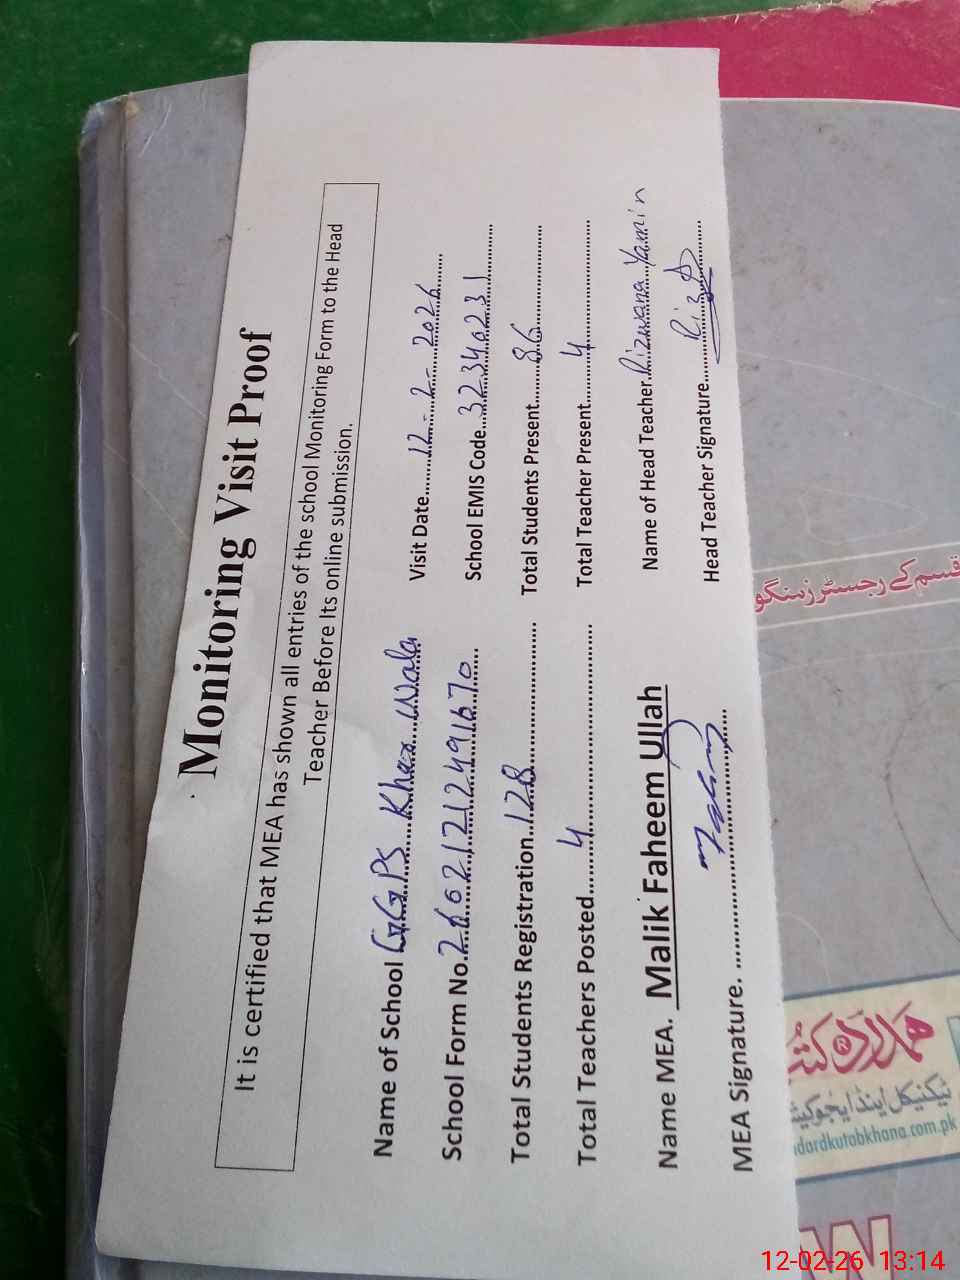 Monitoring Visit Proof
It is certified that MEA has shown all entries of the school Monitoring Form to the Head
Teacher Before Its online submission.
Name of School GGPS Khar Wala Visit Date 12-2-2026
School Form No. 26021212491670 School EMIS Code 32340231
Total Students Registration 128 Total Students Present 86
Total Teachers Posted 4 Total Teacher Present 4
Name MEA. Malik Faheem Ullah Name of Head Teacher Rizwana Yamin
MEA Signature. Head Teacher Signature
قسم کے رجسٹرز
ہمدرد
ٹیکنیکل اینڈ ایجوکیش
dardkutabkhana.com.pk
W
12-02-26 13:14